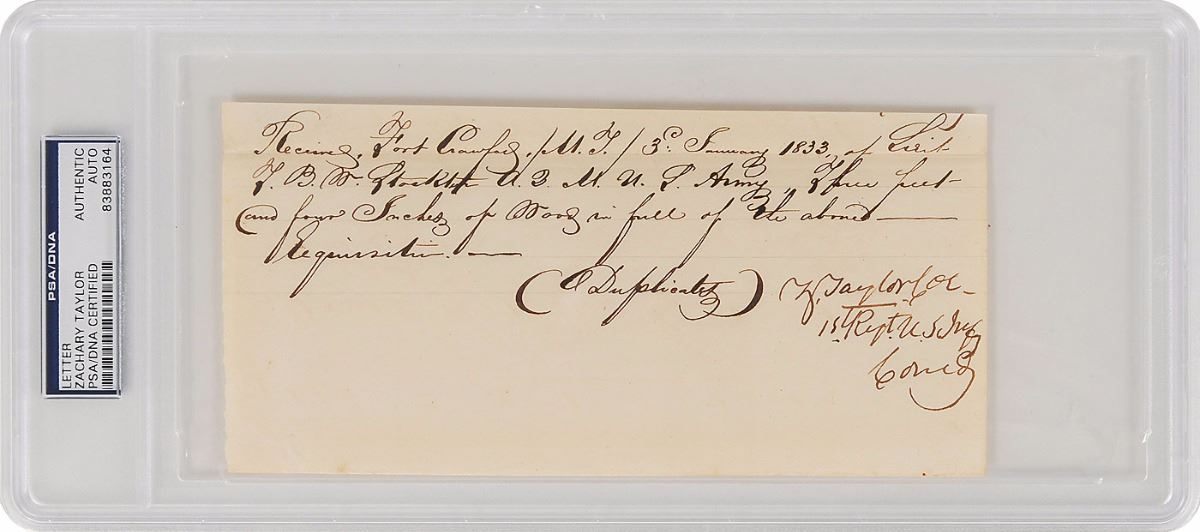 PSA/DNA
LETTER
ZACHARY TAYLOR
PSA/DNA CERTIFIED
AUTHENTIC
AUTO
83883164
Received, Fort Crawford, /M.T./ 3d. January 1833, of Lieut
T. B. W. Stockton A. Q. M. U. S. Army, Three feet
and four Inches of Wood in full of the above
Requisition.
(Duplicates)
Z. Taylor Col
1st Regt. U.S. Infy
Comdg